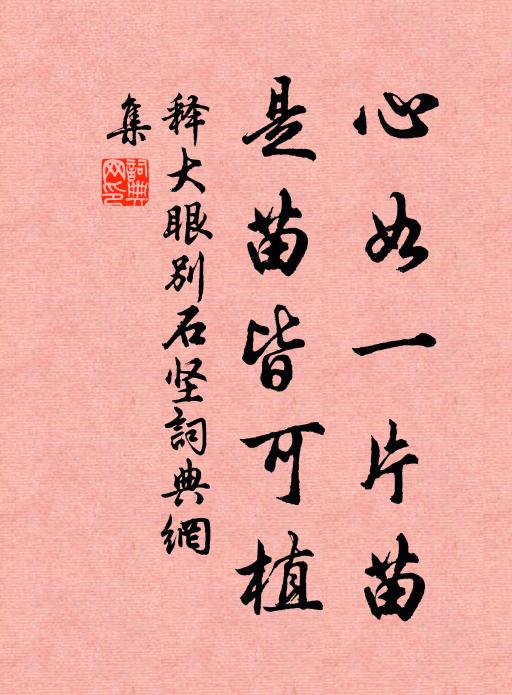 心如一片苗
是苗皆可植
释大眼别石坚詞典網
集
詞典
网印